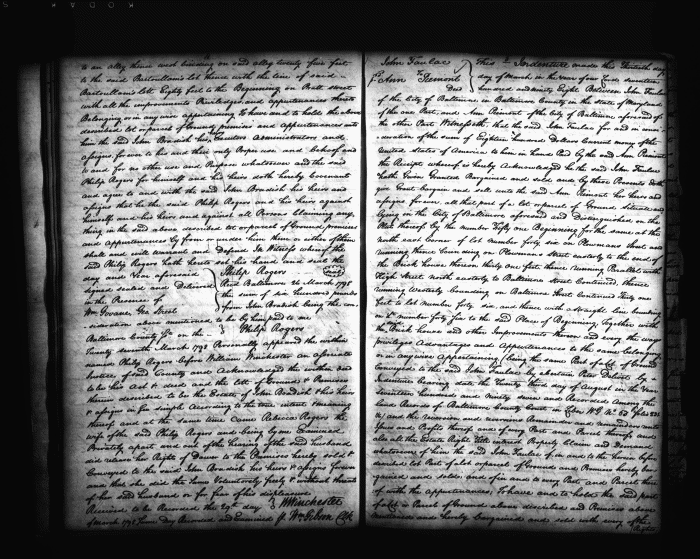 to an alley thence west binding on said alley twenty five feet
to the said Bartoullains lot thence with the line of said
Bartoullains lot Eighty feet to the Beginning on Pratt street
with all the improvements Priviledges and appurtenances thereto
Belonging or in any wise appertaining To have and to hold the above
described lot or parcel of Ground premises and appurtenances unto
him the said John Bradish his Executors Administrators and
assigns for ever to his and their only Proper use and behoof and
to and for no other use and Purpose whatsoever and the said
Philip Rogers for himself and his heirs doth hereby Covenant
and agree to and with the said John Bradish his heirs and
assigns that he the said Philip Rogers and his heirs against
himself and his heirs and against all Persons Claiming any
thing in the said above described lot or parcel of Ground premises
and appurtenances by from or under him them or either of them
shall and will warrant and Defend In Witness whereof the
said Philip Rogers hath hereto set his hand and seal the
day and Year aforesaid Philip Rogers
signed sealed and Delivered Recd Baltimore 26 March 1798
in the Presence of the sum of six hundred pounds
Wm Govane Geo Street from John Bradish being the con
sideration above mentioned to be by him paid to me
Baltimore County Sc on the Philip Rogers
Twenty seventh March 1798 Personally appeared the within
named Philip Rogers before William Winchester an associate
Justice of said County and Acknowledged the within deed
to be his Act & deed and the lott of Ground & Premises
therein described to be the Estate of John Bradish & his heirs
& assigns in fee simple According to the true intent & meaning
thereof and at the same time came Rebecca Rogers the
wife of the said Philip Rogers and being by me Examined
Privately apart and out of the hearing of her said husband
did release her Right of Dower to the Premises hereby sold &
Conveyed to the said John Bradish his heirs & assigns forever
and that she did the same Voluntarily freely & without threats
of her said husband or for fear of his displeasure
Received to be Recorded the 29th day Wm Winchester
of March 1798 same Day Recorded and Examined Wm Gibson Clk
John Faulac This Indenture made this thirtieth day
Ann Piemont day of March in the year of our Lord seventeen
Deed hundred and ninety Eight Between John Faulac
of the City of Baltimore in Baltimore County in the state of Maryland
of the one Part and Ann Piemont of the City of Baltimore aforesaid of
the other Part Witnesseth that he the said John Faulac for and in consi
deration of the sum of Eighteen hundred Dollars Current money of the
United States of America to him in hand Paid by the said Ann Piemont
the Receipt whereof is hereby Acknowledged he the said John Faulac
hath Given Granted Bargained and sold and by these Presents doth
give Grant bargain and sell unto the said Ann Piemont her heirs and
assigns forever all that part of a lot or parcel of Ground situate and
lying in the City of Baltimore aforesaid and Distinguished on the
Plat thereof by the number Fifty one Beginning for the same at the
north east corner of lot number forty six on Plowmans street and
running thence Bounding on Plowmans street easterly to the end of
the Brick house thereon thirty one feet thence running Parallel with
High street north easterly to Baltimore Street Continued thence
running Westerly bounding on Baltimore Street Continued thirty one
feet to lot number forty six and thence with a straight line bounding
on lot number forty six to the said Place of Beginning Together with
the Brick house and other Improvements thereon and every the ways
priviledges Advantages and Appurtenances to the same belonging
or in any wise Appertaining (being the same Part of a lot of Ground
Conveyed to the said John Faulac by
Indenture bearing date the Twenty third day of August in the Year
seventeen hundred and ninety seven and Recorded among the
land Records of Baltimore County Court in Liber WG No 52 folio 232
&c) and the reversions and Remainder and remainders rents
Issues and Profits thereof and of every Part and Parcel thereof and
also all the Estate Right Title interest Property Claim and Demand
whatsoever of him the said John Faulac of in and to the herein before
described lot Part of a lot or parcel of Ground and Premises hereby bar
gained and sold and of in and to every Part and Parcel there
of with the appurtenances To have and to hold the said part
of a lot or Parcel of Ground above described and Premises above
mentioned and hereby bargained and sold with every of the